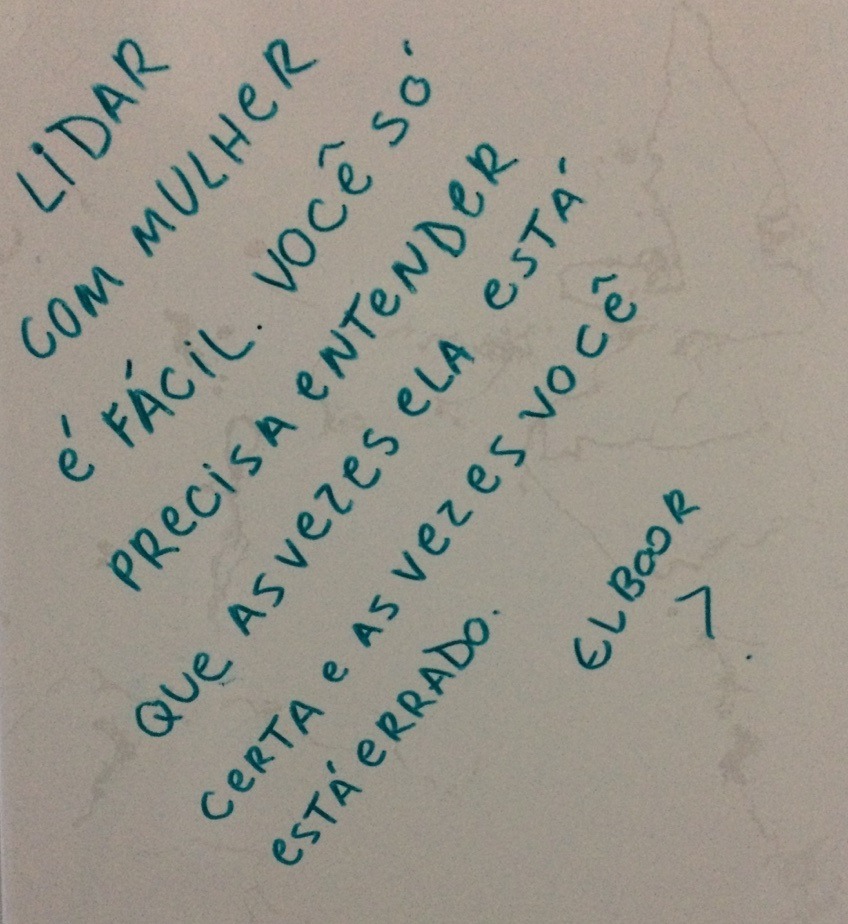 LIDAR
COM MULHER
É FÁCIL. VOCÊ SÓ
PRECISA ENTENDER
QUE AS VEZES ELA ESTÁ
CERTA E AS VEZES VOCÊ
ESTÁ ERRADO.
ELBOOR
7.